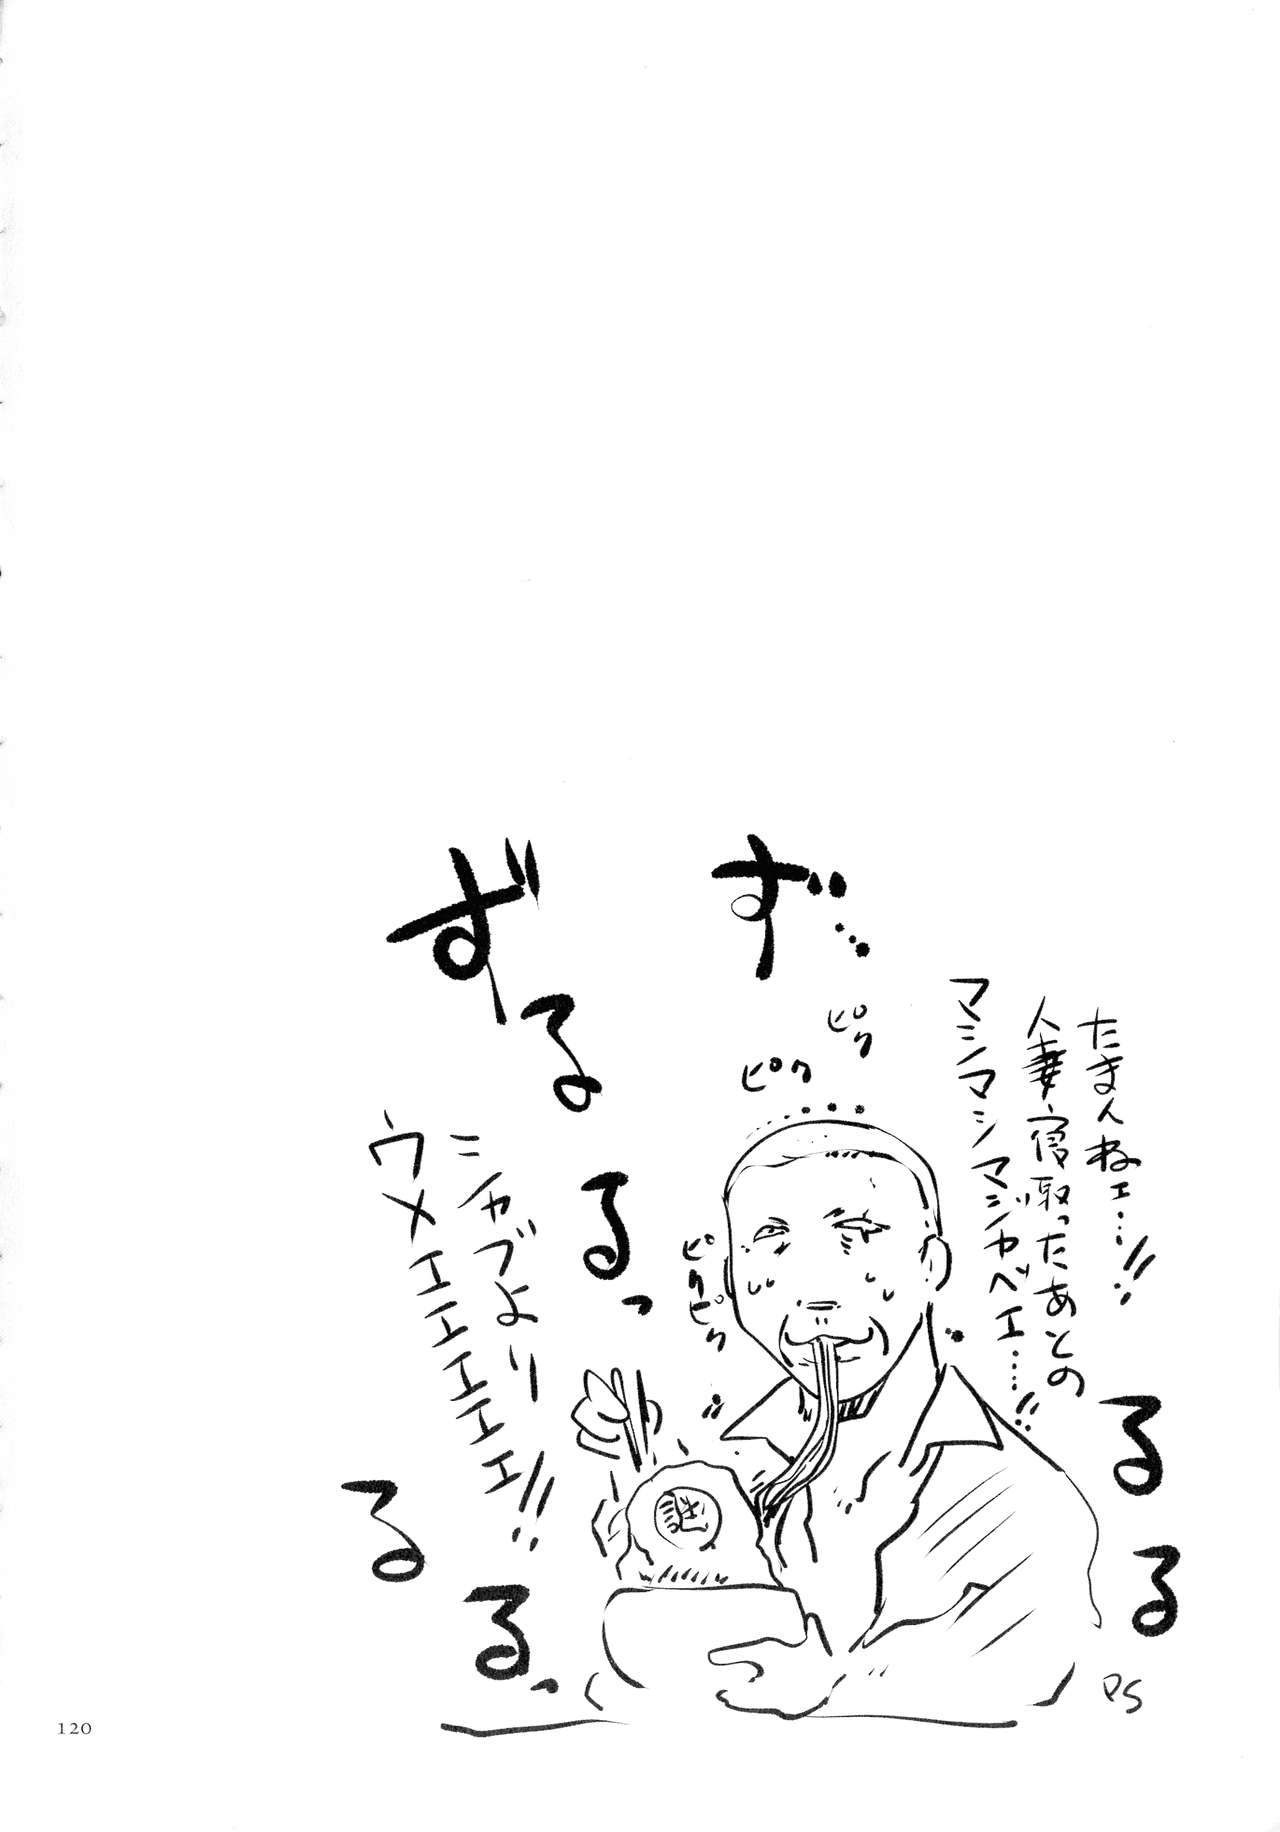 ず…
ずるるるっ
ピク
ピク
ピクピク
たまんねェ…!!
人妻寝取ったあとの
マシマシマジヤベエ…!!
シャブより
ウメエエエエエ!!
謎
るる
るるっ
PS
120